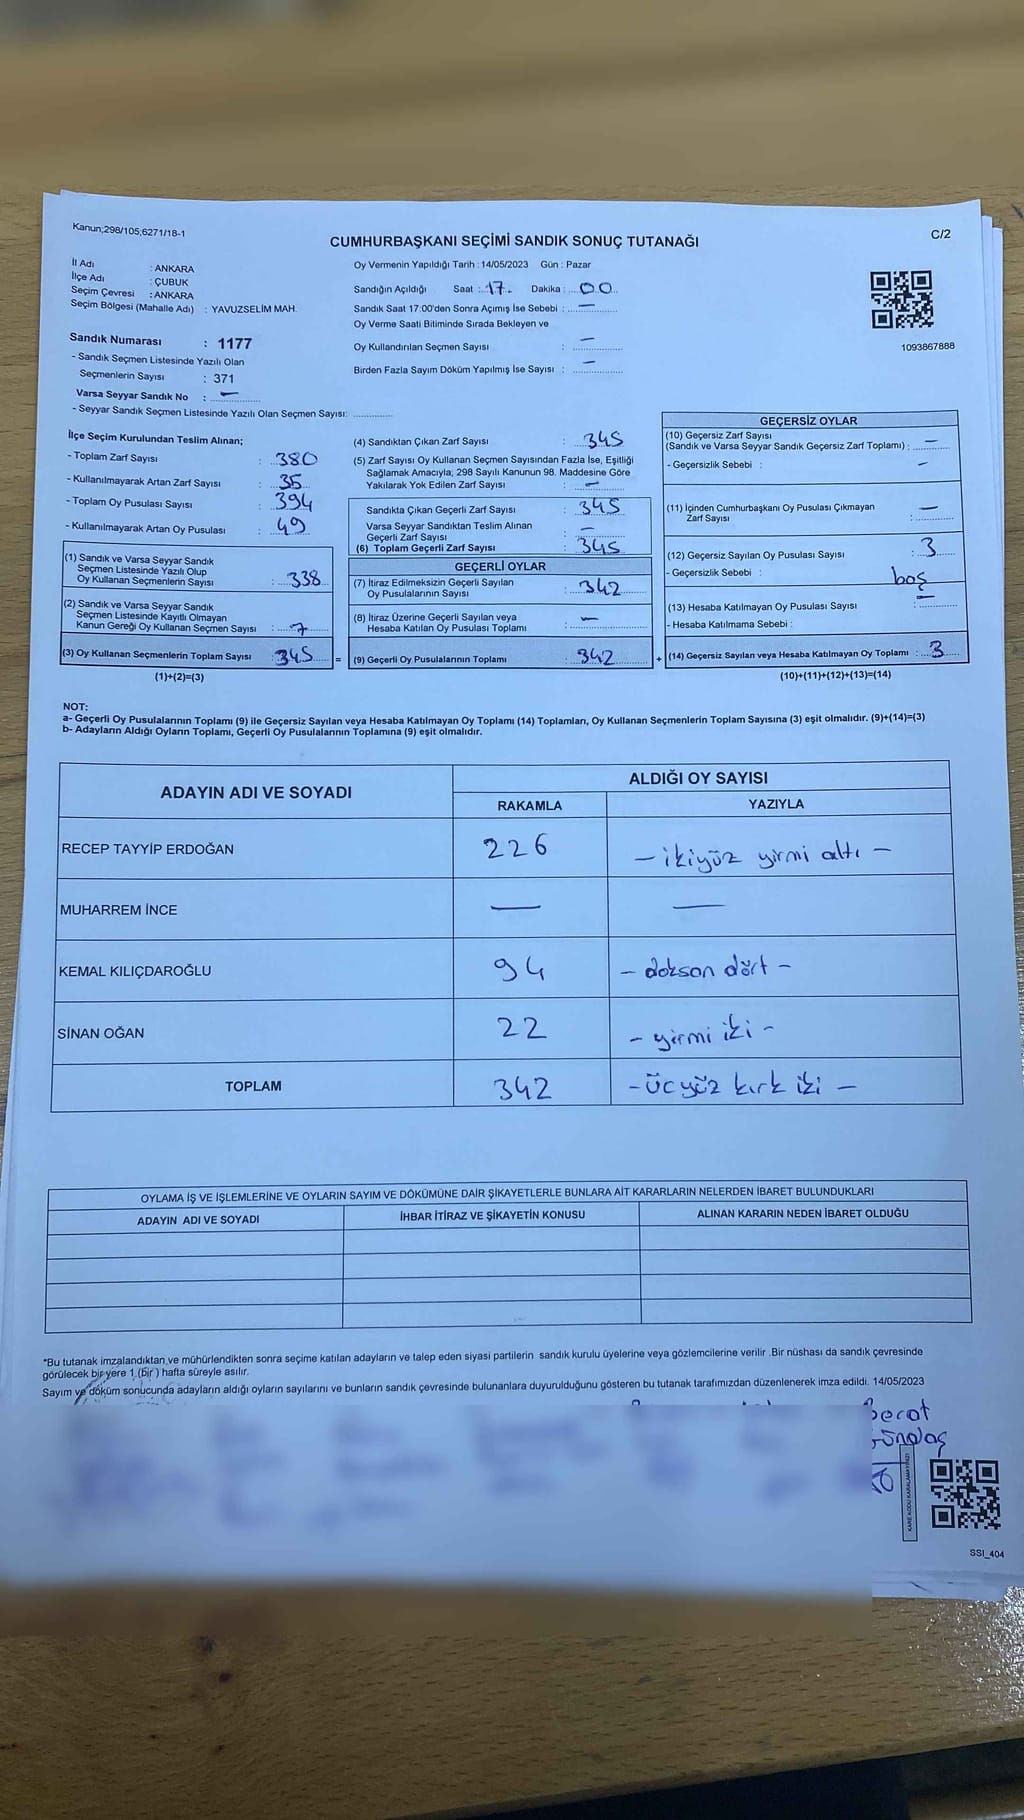 Kanun;298/105;6271/18-1
C/2
CUMHURBAŞKANI SEÇİMİ SANDIK SONUÇ TUTANAĞI
İl Adı : ANKARA
İlçe Adı : ÇUBUK
Seçim Çevresi : ANKARA
Seçim Bölgesi (Mahalle Adı) : YAVUZSELİM MAH.
Oy Vermenin Yapıldığı Tarih : 14/05/2023 Gün : Pazar
Sandığın Açıldığı Saat : 17. Dakika : 00
Sandık Saat 17:00'den Sonra Açımış İse Sebebi : —
Oy Verme Saati Bitiminde Sırada Bekleyen ve
Oy Kullandırılan Seçmen Sayısı : —
Birden Fazla Sayım Döküm Yapılmış İse Sayısı : —
1093867888
Sandık Numarası : 1177
- Sandık Seçmen Listesinde Yazılı Olan
Seçmenlerin Sayısı : 371
Varsa Seyyar Sandık No : —
- Seyyar Sandık Seçmen Listesinde Yazılı Olan Seçmen Sayısı:
İlçe Seçim Kurulundan Teslim Alınan;
- Toplam Zarf Sayısı : 380
- Kullanılmayarak Artan Zarf Sayısı : 35
- Toplam Oy Pusulası Sayısı : 394
- Kullanılmayarak Artan Oy Pusulası : 49
(1) Sandık ve Varsa Seyyar Sandık
Seçmen Listesinde Yazılı Olup
Oy Kullanan Seçmenlerin Sayısı : 338
(2) Sandık ve Varsa Seyyar Sandık
Seçmen Listesinde Kayıtlı Olmayan
Kanun Gereği Oy Kullanan Seçmen Sayısı : 7
(3) Oy Kullanan Seçmenlerin Toplam Sayısı 345 =
(1)+(2)=(3)
(4) Sandıktan Çıkan Zarf Sayısı : 345
(5) Zarf Sayısı Oy Kullanan Seçmen Sayısından Fazla İse, Eşitliği
Sağlamak Amacıyla; 298 Sayılı Kanunun 98. Maddesine Göre
Yakılarak Yok Edilen Zarf Sayısı : —
Sandıkta Çıkan Geçerli Zarf Sayısı : 345
Varsa Seyyar Sandıktan Teslim Alınan
Geçerli Zarf Sayısı : —
(6) Toplam Geçerli Zarf Sayısı : 345
GEÇERLİ OYLAR
(7) İtiraz Edilmeksizin Geçerli Sayılan
Oy Pusulalarının Sayısı : 342
(8) İtiraz Üzerine Geçerli Sayılan veya
Hesaba Katılan Oy Pusulası Toplamı : —
(9) Geçerli Oy Pusulalarının Toplamı : 342 +
GEÇERSİZ OYLAR
(10) Geçersiz Zarf Sayısı
(Sandık ve Varsa Seyyar Sandık Geçersiz Zarf Toplamı) : —
- Geçersizlik Sebebi : —
(11) İçinden Cumhurbaşkanı Oy Pusulası Çıkmayan
Zarf Sayısı : —
(12) Geçersiz Sayılan Oy Pusulası Sayısı : 3
- Geçersizlik Sebebi : boş
(13) Hesaba Katılmayan Oy Pusulası Sayısı : —
- Hesaba Katılmama Sebebi :
(14) Geçersiz Sayılan veya Hesaba Katılmayan Oy Toplamı : 3
(10)+(11)+(12)+(13)=(14)
NOT:
a- Geçerli Oy Pusulalarının Toplamı (9) ile Geçersiz Sayılan veya Hesaba Katılmayan Oy Toplamı (14) Toplamları, Oy Kullanan Seçmenlerin Toplam Sayısına (3) eşit olmalıdır. (9)+(14)=(3)
b- Adayların Aldığı Oyların Toplamı, Geçerli Oy Pusulalarının Toplamına (9) eşit olmalıdır.
ADAYIN ADI VE SOYADI
ALDIĞI OY SAYISI
RAKAMLA YAZIYLA
RECEP TAYYİP ERDOĞAN 226 — ikiyüz yirmi altı —
MUHARREM İNCE — —
KEMAL KILIÇDAROĞLU 94 - doksan dört -
SİNAN OĞAN 22 - yirmi iki -
TOPLAM 342 - üçyüz kırk iki —
OYLAMA İŞ VE İŞLEMLERİNE VE OYLARIN SAYIM VE DÖKÜMÜNE DAİR ŞİKAYETLERLE BUNLARA AİT KARARLARIN NELERDEN İBARET BULUNDUKLARI
ADAYIN ADI VE SOYADI İHBAR İTİRAZ VE ŞİKAYETİN KONUSU ALINAN KARARIN NEDEN İBARET OLDUĞU
*Bu tutanak imzalandıktan ve mühürlendikten sonra seçime katılan adayların ve talep eden siyasi partilerin sandık kurulu üyelerine veya gözlemcilerine verilir .Bir nüshası da sandık çevresinde
görülecek bir yere 1 (bir ) hafta süreyle asılır.
Sayım ve döküm sonucunda adayların aldığı oyların sayılarını ve bunların sandık çevresinde bulunanlara duyurulduğunu gösteren bu tutanak tarafımızdan düzenlenerek imza edildi. 14/05/2023
Berat
KARE KODU KARALAMAYINIZ!
SSI_404